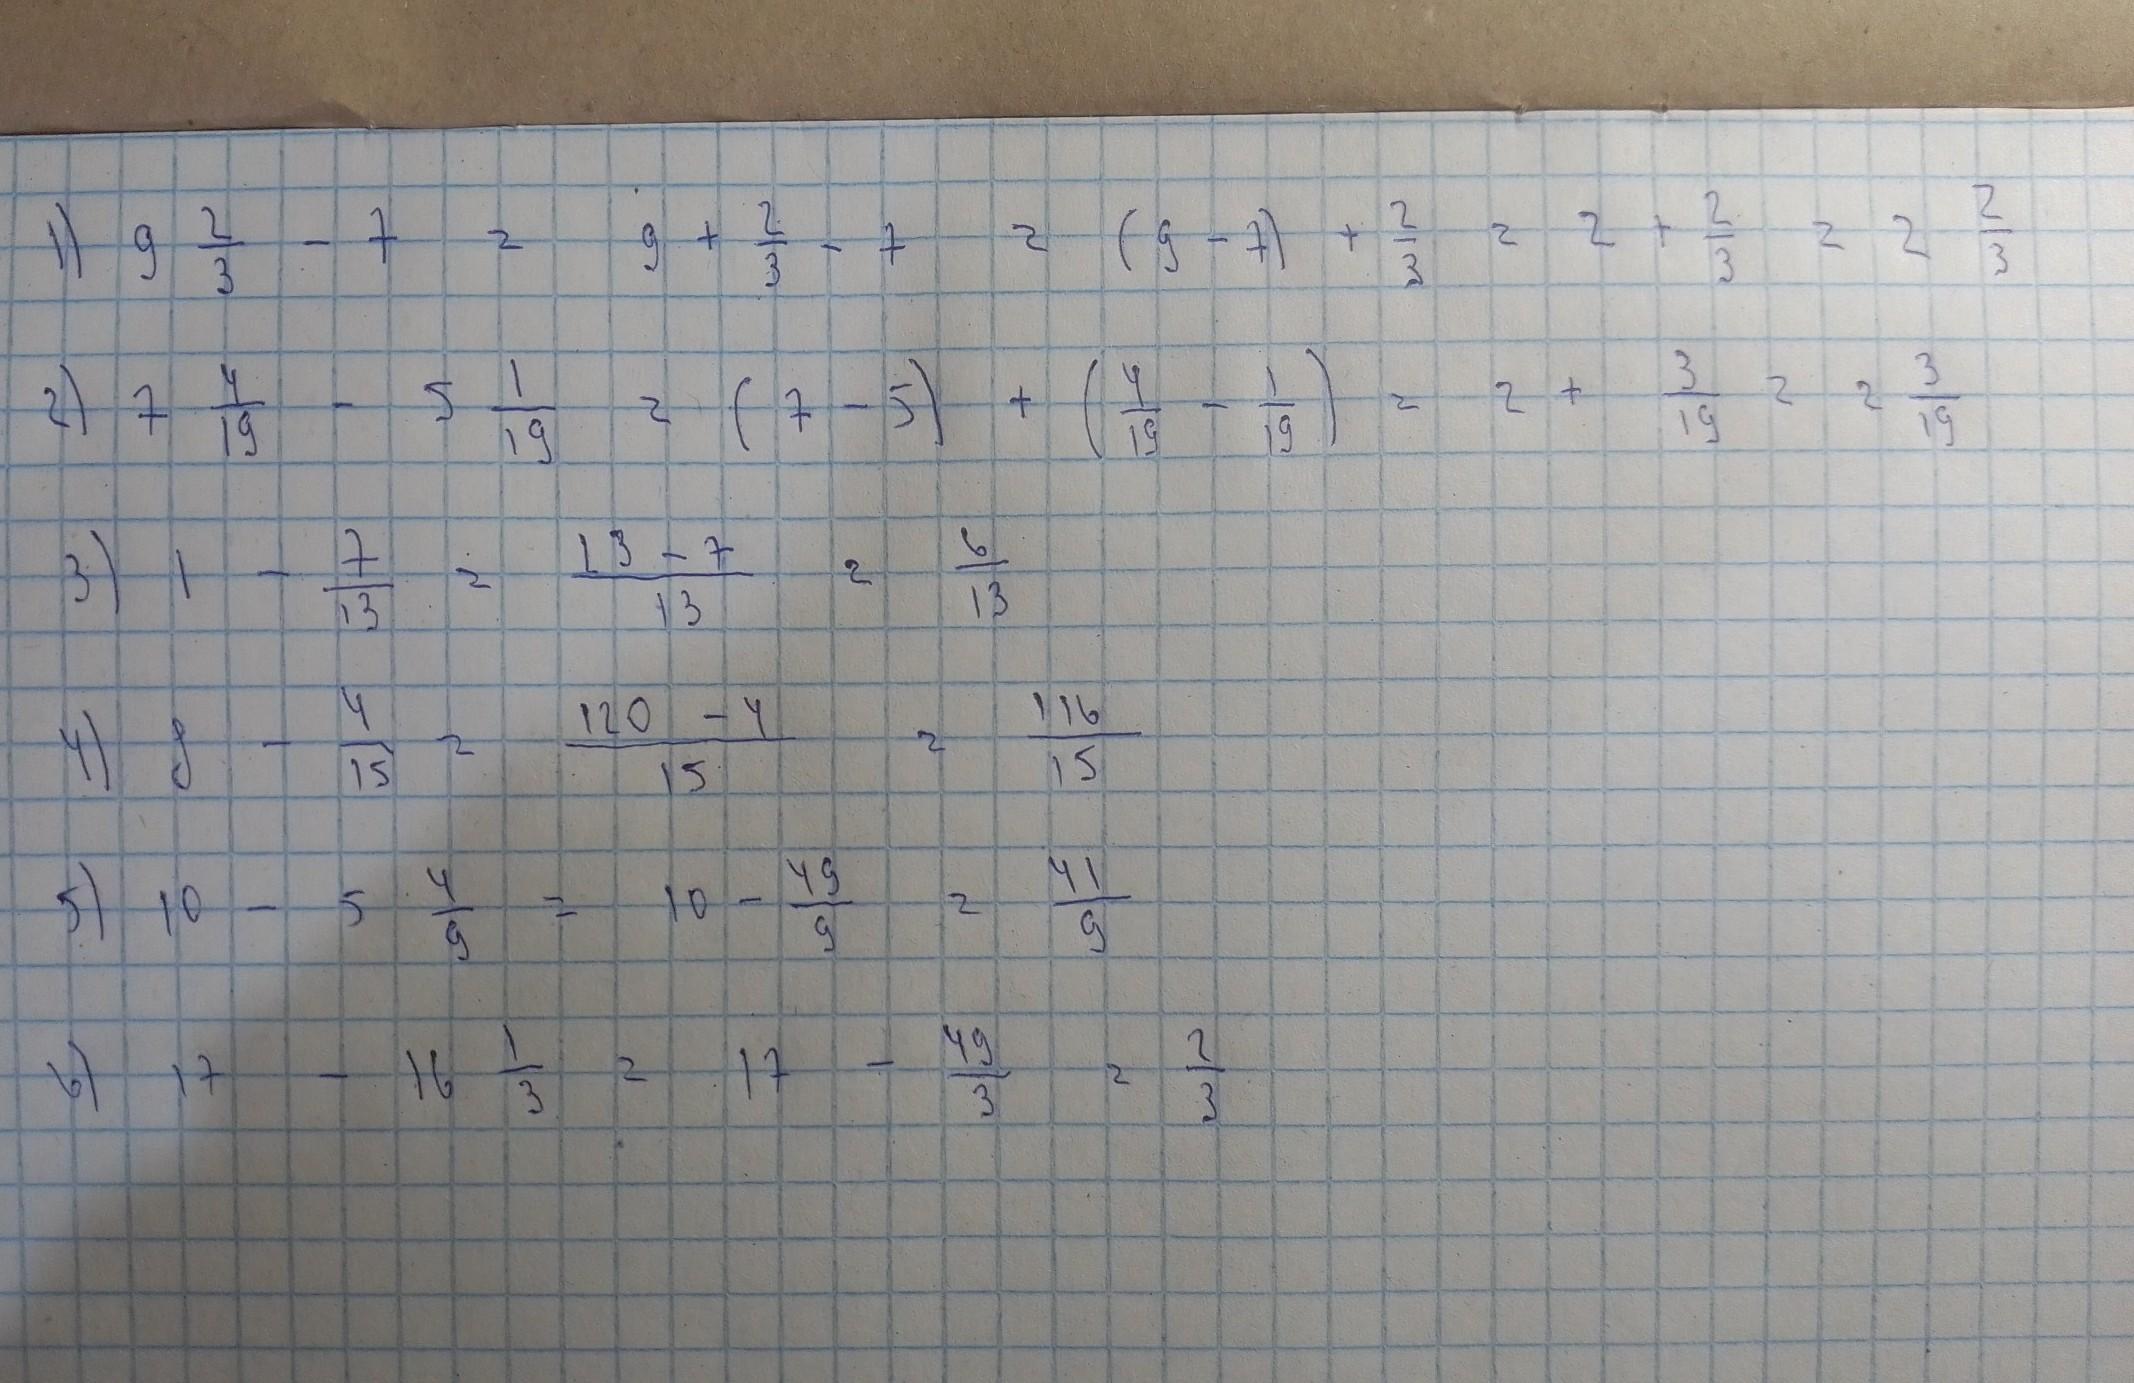 1) 9 2/3 - 7 = 9 + 2/3 - 7 = (9 - 7) + 2/3 = 2 + 2/3 = 2 2/3
2) 7 4/19 - 5 1/19 = (7 - 5) + (4/19 - 1/19) = 2 + 3/19 = 2 3/19
3) 1 - 7/13 = (13 - 7)/13 = 6/13
4) 8 - 4/15 = (120 - 4)/15 = 116/15
5) 10 - 5 4/9 = 10 - 49/9 = 41/9
6) 17 - 16 1/3 = 17 - 49/3 = 2/3